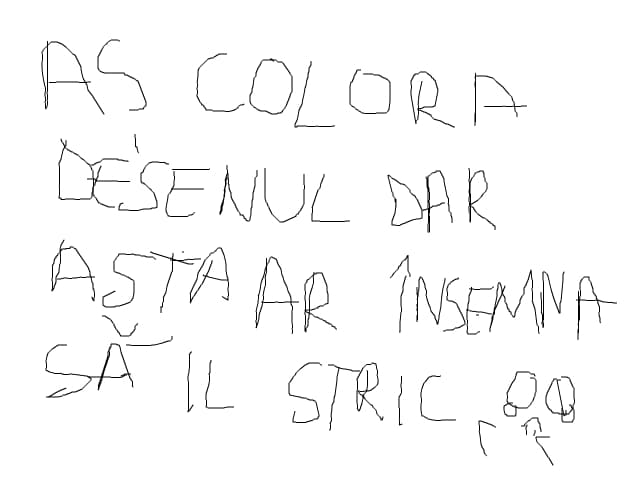 AS COLORA
DESENUL DAR
ASTA AR ÎNSEMNA
SĂ IL STRIC